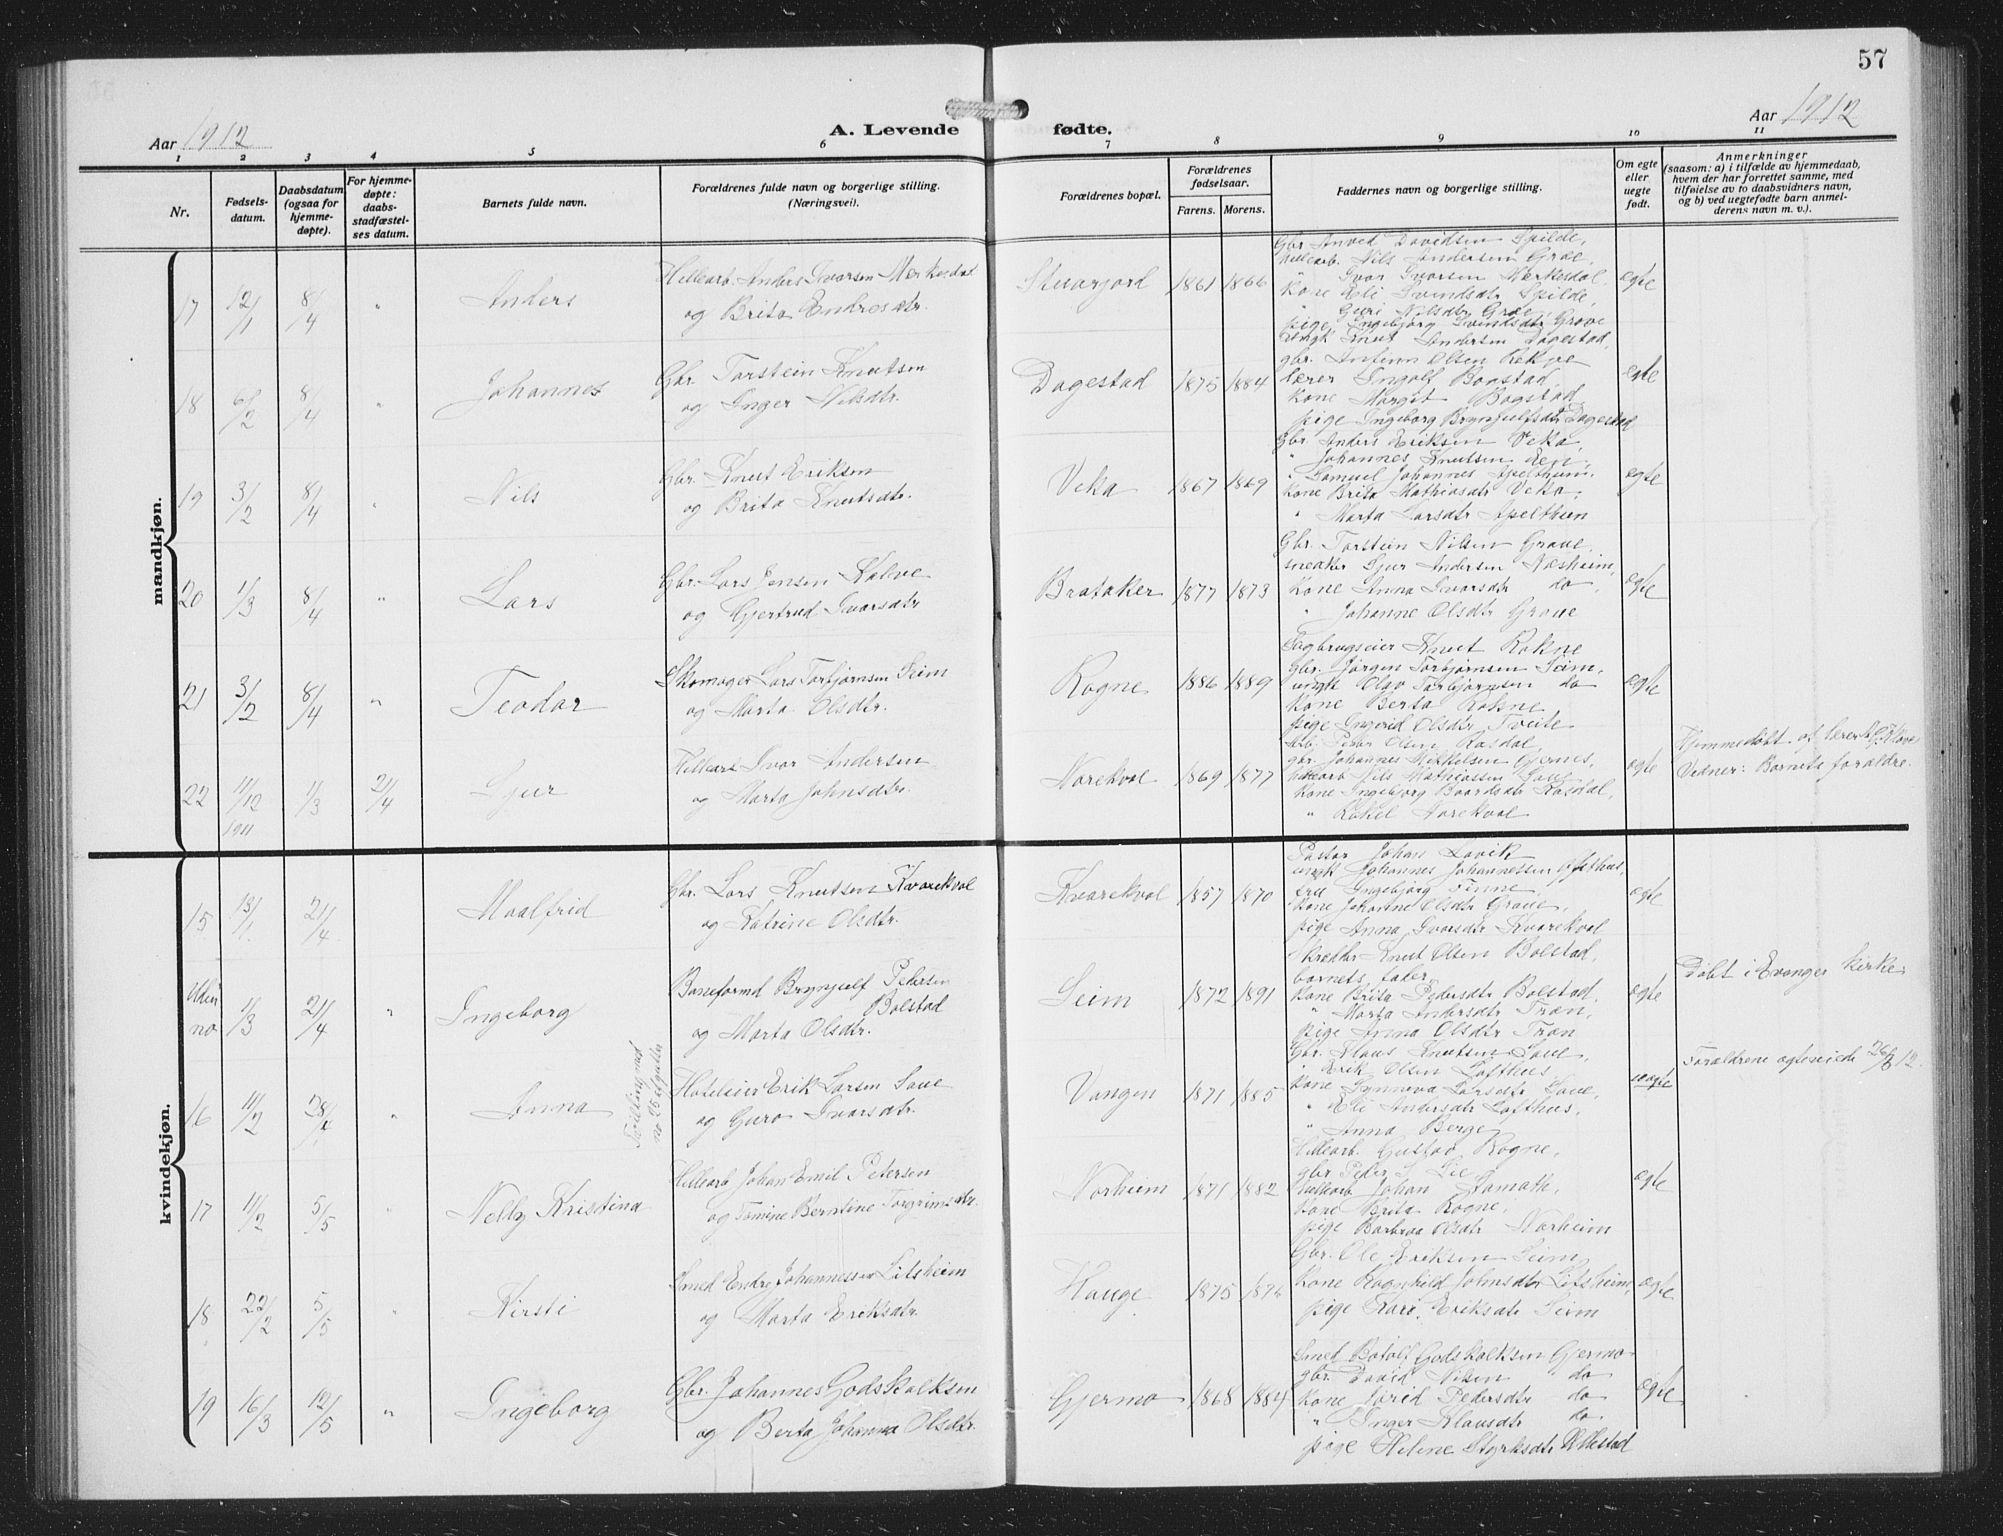 57
Aar 1912
A. Levende fødte.
Aar 1912
1 2 3 4 5 6 7 8 9 10 11
Nr.
Fødsels-
datum.
Daabsdatum
(ogsaa for
hjemme-
døpte).
For hjemme-
døpte:
daabs-
stadfæstel-
ses datum.
Barnets fulde navn.
Forældrenes fulde navn og borgerlige stilling.
(Næringsvei).
Forældrenes bopæl.
Forældrenes
fødselsaar.
Farens. Morens.
Faddernes navn og borgerlige stilling.
Om egte
eller
uegte
født.
Anmerkninger
(saasom: a) i tilfælde av hjemmedaab,
hvem der har forrettet samme, med
tilføielse av to daabsvidners navn,
og b) ved uegtefødte barn anmel-
derens navn m. v.).
mandkjøn.
17 12/1 8/4 " Anders
Hellearb. Anders Ivarsen Mærkesdal
og Brita Endresdtr.
1861 1866
Gbr. Anved Davidsen Spilde,
hellearb. Nils Andersen Græ,
" Ivar Ivarsen Mærkesdal,
Kone Eli Svindsdtr Spilde,
" Guri Nilsdtr Græe,
pige Ingebjørg Svindsdtr Grove
egte
18 6/2 8/4 " Johannes
Gbr. Torstein Knutsen
og Inger Nilsdtr.
Dagestad 1875 1884
ungk. Knut Andersen Dagestad,
gbr. Olsen Rekve
lærer Ingolf Bogstad,
kone Margit Bogstad,
pige Ingeborg Brynjulfsdtr Dagestad
egte
19 3/2 8/4 " Nils
Gbr. Knut Eriksen
og Brita Knutsdtr.
Veka 1867 1869
Gbr. Anders Eriksen Veka,
" Johannes Knutsen
" Samuel Johannes Apelthun,
Kone Brita Mathiasdtr Veka,
" Marta Larsdtr Apelthun
egte
20 1/3 8/4 " Lars
Gbr. Lars Jensen Kalve
og Gjertrud Ivarsdtr
Brataker 1877 1873
Gbr. Torstein Nilsen Grove,
snedker Sjur Andersen Næsheim,
Kone Anna Ivarsdtr do,
" Johanne Olsdtr Grove
egte
21 3/2 8/4 " Teodor
Skomager Lars Torbjørnsen Seim
og Marta Olsdtr.
Rogne 1886 1889
Sagbrugseier Knut Rokne
Gbr. Jørgen Torbjørnsen Seim,
ungk Olav Torbjørnsen do
Kone Berta Rokne
pige Ingerid Olsdtr Tveite
egte
22 11/12 1911 1/3 21/4 Sjur
Hellearb Ivar Andersen
og Marta Johnsdtr.
Norekval 1869 1877
Arb. Peder Olsen Rasdal,
gbr. Johannes Mikkelsen Gjernes,
hellearb Nils Mathiassen
Kone Ingebjørg Baardsdtr Rasdal,
" Rakel Norekval
egte
Hjemmedøbt af lærer
Vidner: Barnets foraldre.
kvindekjøn.
15 13/1 21/4 Maalfrid
Gbr. Lars Knutsen Kvarekval
og Katrine Olsdtr.
Kvarekval 1857 1870
Pastor Johan Lavik
ungk Johannes Johannessen Ofsthus,
fru Ingebjørg Finne,
Kone Johanne Olsdtr Grove,
pige Anna Ivarsdtr Kvarekval
egte
Uden no 1/3 21/4 " Ingeborg
Baneformd Brynjulf Pedersen
Bolstad
og Marta Olsdtr.
Seim 1872 1891
Skrædder Knut Olsen Bolstad,
barnets fader,
Kone Brita Pedersdtr Bolstad,
" Marta Andersdtr Træn,
pige Anna Olsdtr Træn
egte
Døbt i Evanger kirke
16 11/2 28/4 " Anna
Hoteleier Erik Larsen Saue
og Guro Ivarsdtr.
Vangen 1871 1885
Gbr. Klaus Knutsen Saue,
" Erik Olsen Lofthus,
Kone Synneva Larsdtr Saue,
" Eli Andersdtr Lofthus,
" Anna Berge
uægte
Foraldrene egteviede 26/8 12.
17 11/2 5/5 " Nelly Kristina
Hellearb Johan Emil Petersen
og Tomine Berntine Torgrimsdtr.
Norheim 1871 1882
Hellearb. Gustav Rogne,
gbr Peder S. Lie
hellearb Johan
Kone Brita Rogne,
pige Barbraa Olsdtr Norheim
egte
18 22/2 5/5 " Kirsti
Smed Endre Johannessen Litsheim
og Marta Eriksdtr.
Hauge 1875 1876
Gbr. Ole Eriksen Seim,
Kone Ragnhild Johnsdtr Litsheim,
pige Kari Eriksdtr Seim
egte
19 16/3 12/5 " Ingeborg
Gbr. Johannes Godskalksen
og Berta Johanna Olsdtr.
Gjermo 1868 1884
Smed Botolf Godskalksen Gjermo
gbr. David Nilsen do
Kone Jorid Pedersdtr do
" Inger Klausdtr do
pige Helene Styrksdtr Ullestad
egte